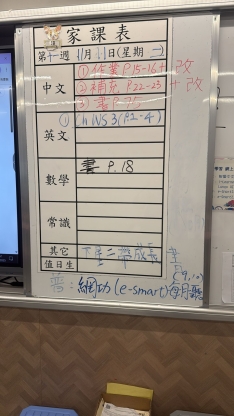 家課表
第十一週 11月11日(星期二)
中文
①作業P.15-16+改
②補充 P.22-23+改
③書P.75
英文
① NS3(P.2-4)
數學
書 P.18
常識
其它
下星二帶成長
值日生
普: 網功(e-smart)每月聽